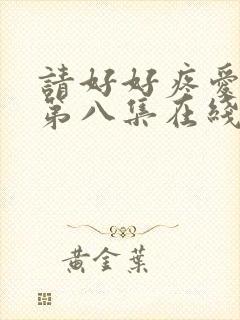 請好好疼愛
第八集在綫
黃金葉